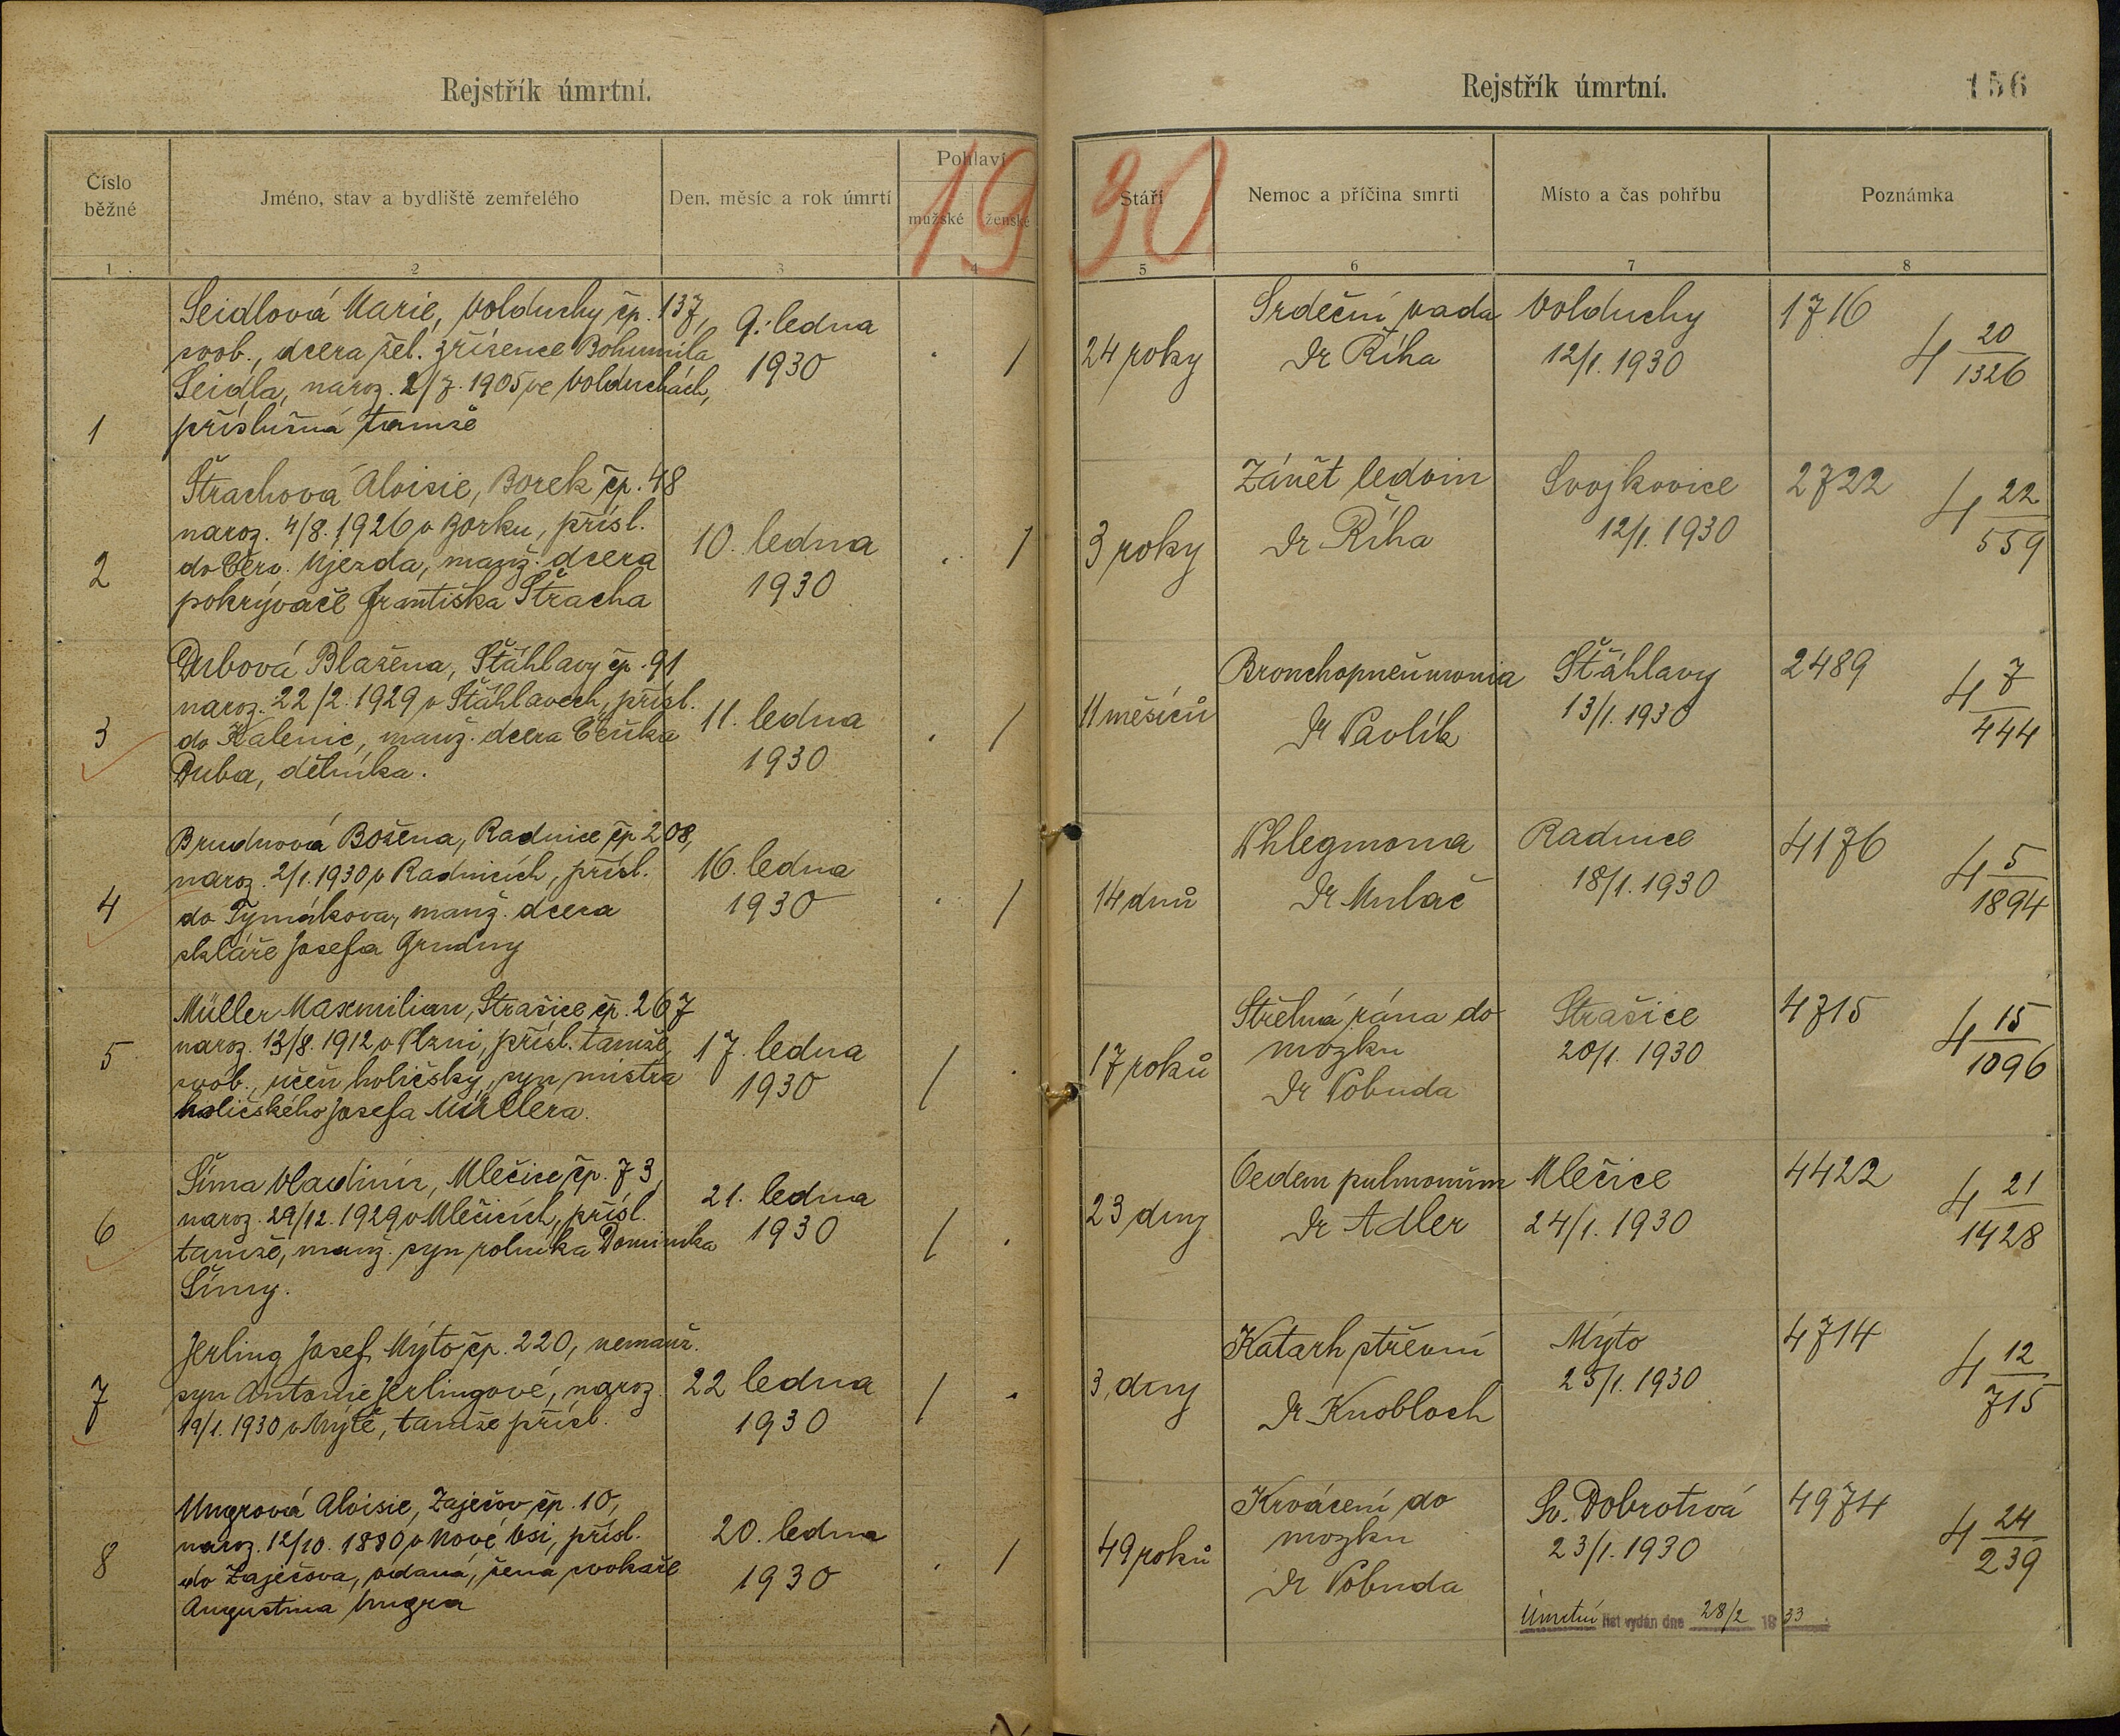 Rejstřík úmrtní.
Rejstřík úmrtní.
156
Číslo běžné
Jméno, stav a bydliště zemřelého
Den, měsíc a rok úmrtí
Pohlaví
mužské
ženské
Stáří
Nemoc a příčina smrti
Místo a čas pohřbu
Poznámka
1930
1
2
3
4
5
6
7
8
1
Seidlová Marie, Volduchy čp. 137,
svob., dcera žel. zřízence Bohumila
Seidla, naroz. 2/7. 1905 ve Volduchách,
příslušná tamže
9. ledna
1930
. /
24 roky
Srdeční vada
Dr Říha
Volduchy
12/1. 1930
1716
4 20/1326
2
Štrachová Aloisie, Borek čp. 48
naroz. 4/8. 1926 v Borku, přísl.
do Červ. Újezda, manž. dcera
pokrývače Františka Štracha
10. ledna
1930
. /
3 roky
Zánět ledvin
Dr Říha
Svojkovice
12/1. 1930
2722
4 22/559
3
Dubová Blažena, Šťáhlavy čp. 91
naroz. 22/2. 1929 v Šťáhlavech, přísl.
do Kalenic, manž. dcera Čeňka
Duba, dělníka.
11. ledna
1930
. /
11 měsíců
Bronchopneumonia
Dr Pavlík
Šťáhlavy
13/1. 1930
2489
4 7/444
4
Brudnová Božena, Radnice čp 208,
naroz. 2/1. 1930 v Radnicích, přísl.
do Tymákova, manž. dcera
skláře Josefa Grudny
16. ledna
1930
. /
14 dnů
Phlegmona
Dr Mulač
Radnice
18/1. 1930
4176
4 5/1894
5
Müller Maxmilian, Strašice čp. 267
naroz. 13/8. 1912 v Plzni, přísl. tamže,
svob., učeň holičský, syn mistra
holičského Josefa Müllera.
17. ledna
1930
/ .
17 roků
Střelná rána do
mozku
Dr Pobuda
Strašice
20/1. 1930
4715
4 15/1096
6
Šíma Vladimír, Mlečice čp. 73,
naroz. 29/12. 1929 v Mlečicích, přísl.
tamže, manž. syn rolníka Dominika
Šímy.
21. ledna
1930
/ .
23 dny
Oedem pulmonum
Dr Adler
Mlečice
24/1. 1930
4422
4 21/1428
7
Jerling Josef, Mýto čp. 220, nemanž.
syn Antonie Jerlingové, naroz.
19/1. 1930 v Mýtě, tamže přísl.
22 ledna
1930
/ .
3 dny
Katarh střevní
Dr Knobloch
Mýto
25/1. 1930
4714
4 12/715
8
Ungrová Aloisie, Zaječov čp. 10,
naroz. 12/10. 1880 v Nové Vsi, přísl.
do Zaječova, vdaná, žena cvokaře
Augustina Ungra
20. ledna
1930
. /
49 roků
Krvácení do
mozku
Dr Pobuda
Sv. Dobrotivá
23/1. 1930
4974
4 24/239
Úmrtní list vydán dne 28/2 19 33